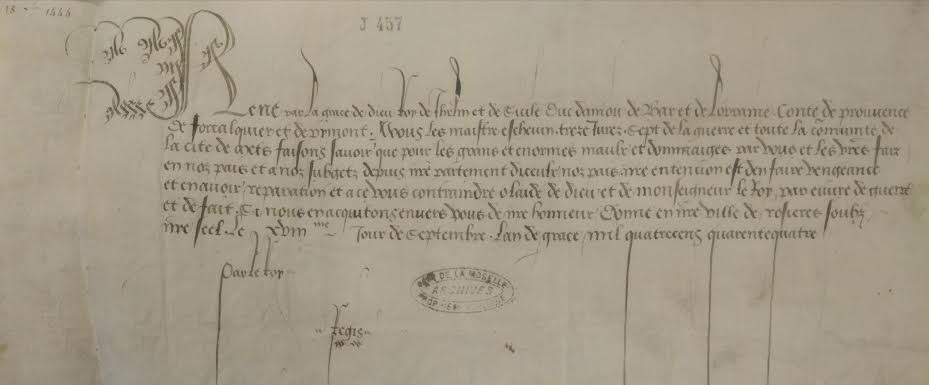 18 1444
J 457
Rene par la grace de dieu Roy de Jhrlm et de Sicile Duc daniou de Bar et de Lorraine Conte de prouuence
de forcalquier et de pimont. A vous les maistre escheuin treze Jurez. Sept de la guerre et toute la comunite de
la cite de Mets faisons sauoir que pour les grans et enormes maulx et dommaiges par vous et les vres faiz
en noz pais et a noz subgetz depuis nre partement diceulx noz pais nre entencion est den faire vengeance
et en auoir reparation et a ce vous contraindre o laide de dieu et de monseigneur le Roy, par euure de guerre
et de fait. Si nous en acquitons enuers vous de nre honneur Donne en nre ville de rosieres soubz
nre seel. le xviii me Jour de Septembre. Lan de grace mil quatrecens quarentequatre
Par le Roy
DE LA MOSELLE
ARCHIVES
Regis